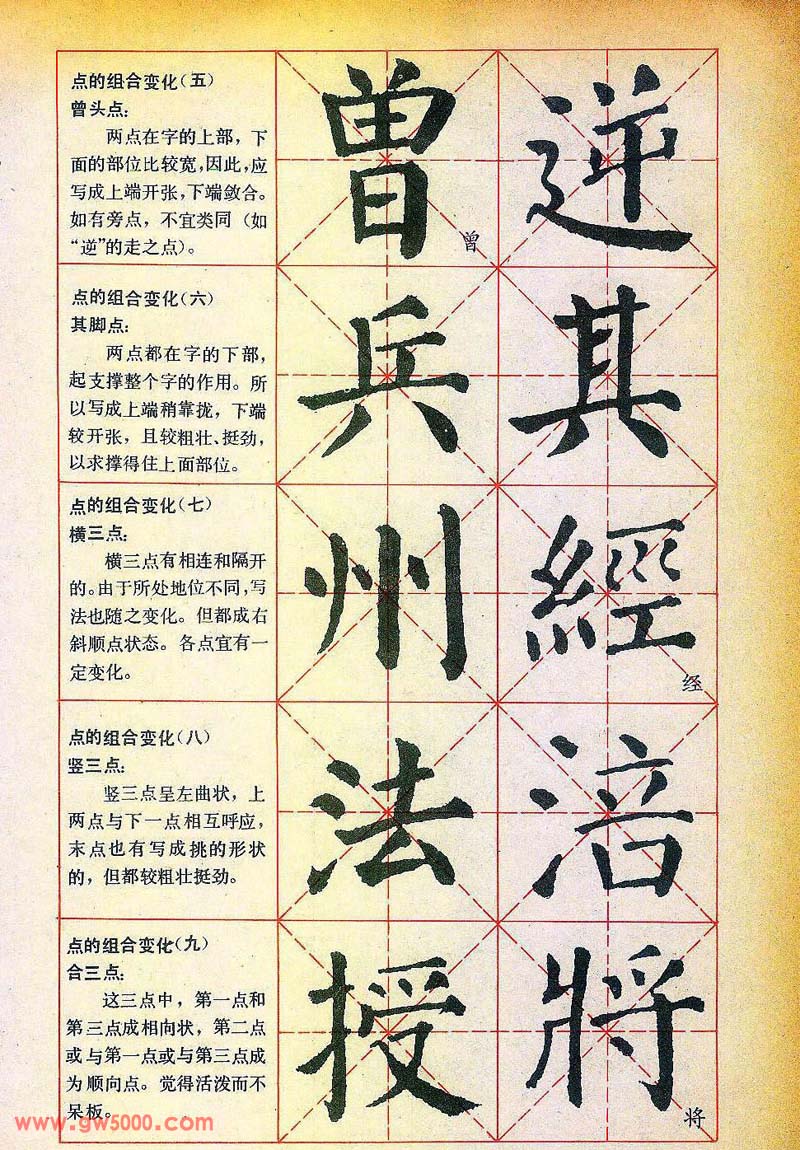 点的组合变化（五）
曾头点：
两点在字的上部，下
面的部位比较宽，因此，应
写成上端开张，下端敛合。
如有旁点，不宜类同（如
“逆”的走之点）。
曾 逆
曾
点的组合变化（六）
其脚点：
两点都在字的下部，
起支撑整个字的作用。所
以写成上端稍靠拢，下端
较开张，且较粗壮、挺劲，
以求撑得住上面部位。
兵 其
点的组合变化（七）
横三点：
横三点有相连和隔开
的。由于所处地位不同，写
法也随之变化。但都成右
斜顺点状态。各点宜有一
定变化。
州 經
经
点的组合变化（八）
竖三点：
竖三点呈左曲状，上
两点与下一点相互呼应，
末点也有写成挑的形状
的，但都较粗壮挺劲。
法 涪
点的组合变化（九）
合三点：
这三点中，第一点和
第三点成相向状，第二点
或与第一点或与第三点成
为顺向点。觉得活泼而不
呆板。
授 將
将
www.gw5000.com